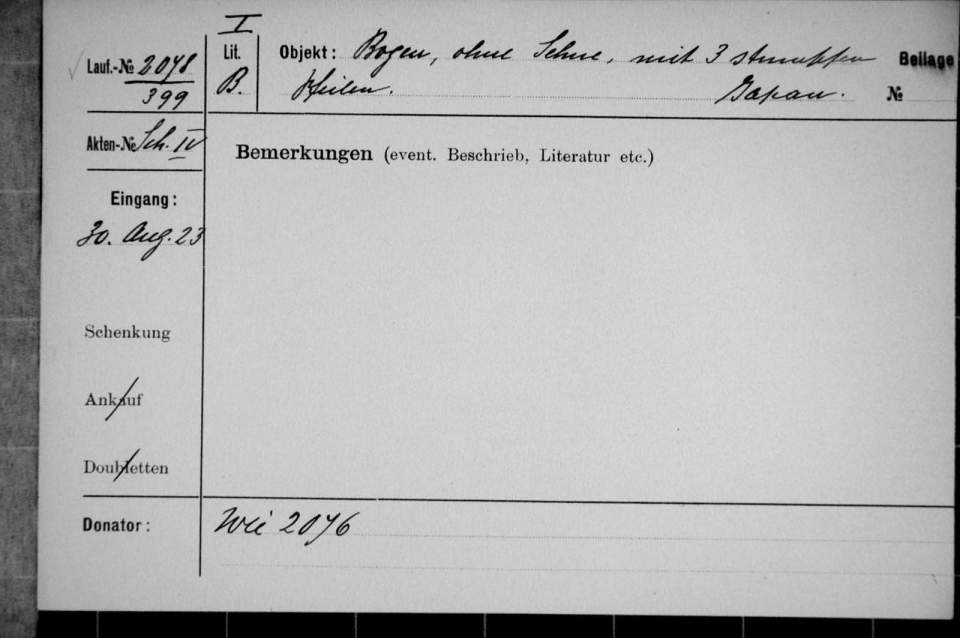 I
Lauf.-№ 2078
399
Lit.
B.
Objekt: Bogen, ohne Sehne, mit 3 stumpfen
Pfeilen. Japan.
Beilage
№
Akten-№ Sch. IV
Bemerkungen (event. Beschrieb, Literatur etc.)
Eingang:
30. Aug. 23
Schenkung
Ankauf
Doubletten
Donator: Wie 2076